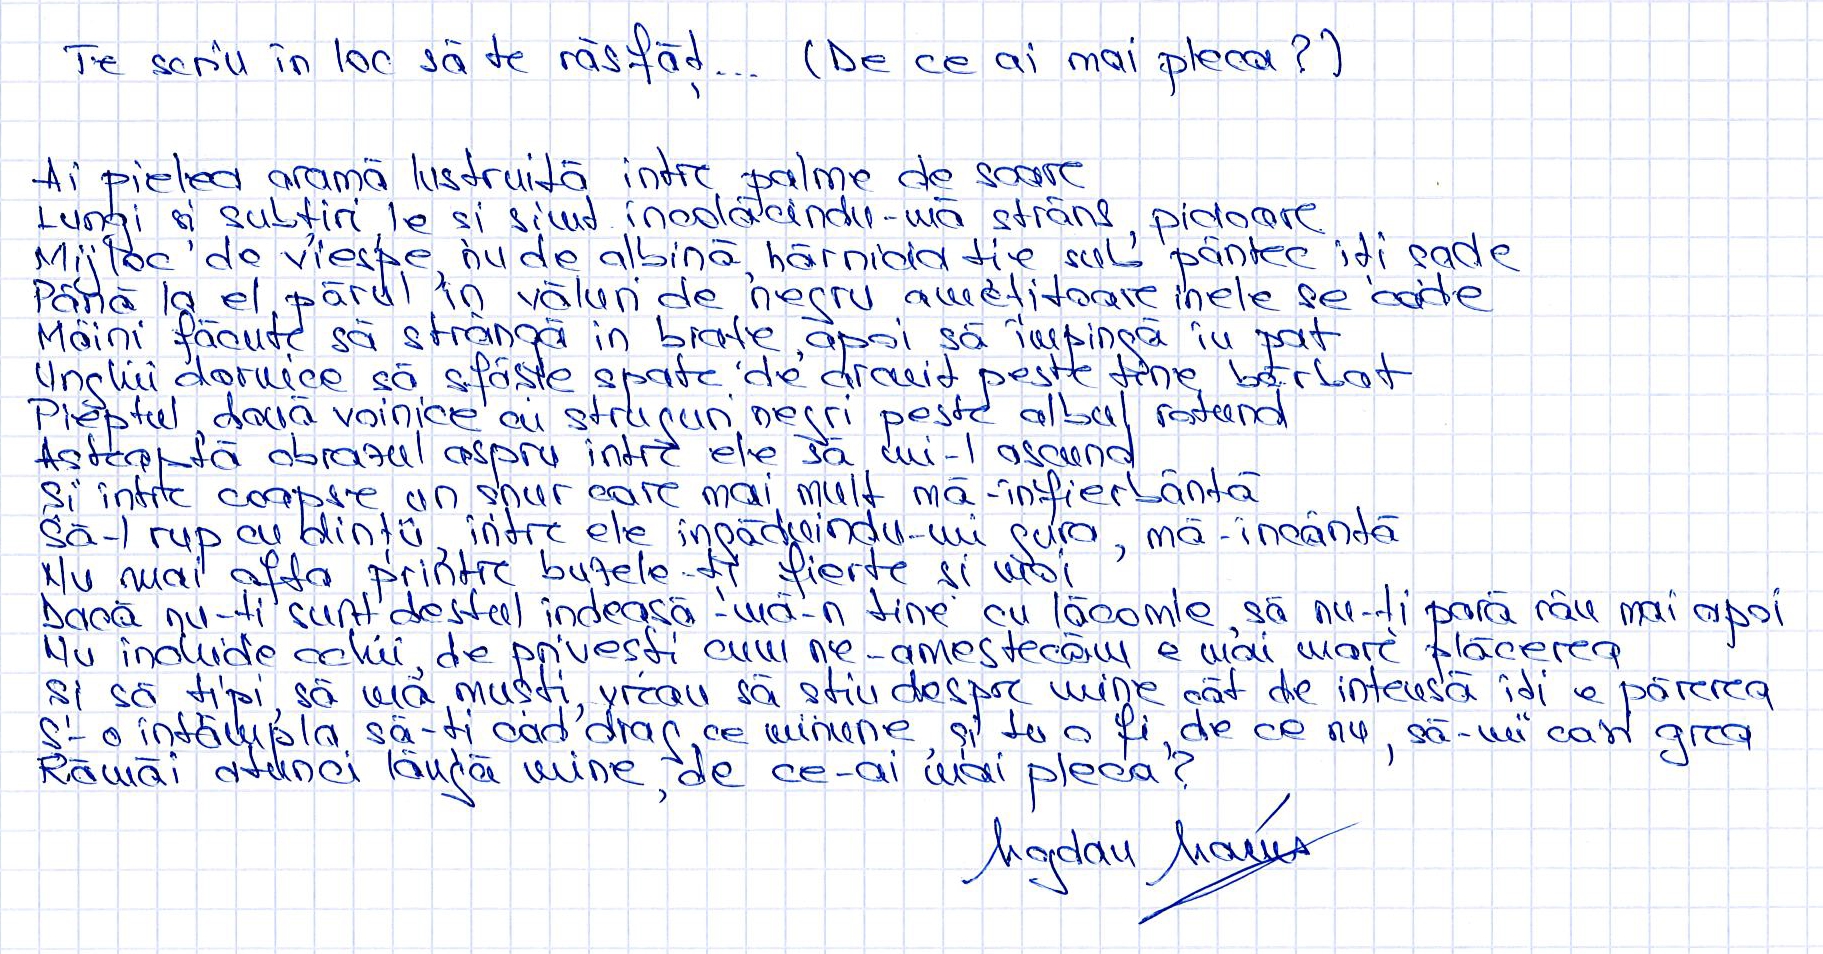 Te scriu în loc să te răsfăț... (De ce ai mai pleca?)
Ai pielea aramă lustruită între palme de soare
Lungi și subțiri, le și simt încolăcindu-mă strâns, picioare
Mijloc de viespe, nu de albină, hărnicia ție sub pântec îți șade
Până la el, părul în văluri de negru amețitoare inele se cade
Mâini făcute să strângă în brațe, apoi să împingă în pat
Unghii dornice să sfâșie spate de arcuit peste tine, bărbat
Pieptul, două voinice cu struguri negri peste albul rotund
Așteaptă obrazul aspru între ele să mi-l ascund
Și între coapse un șnur care mai mult mă-nfierbântă
Să-l rup cu dinții, între ele îngăduindu-mi gura, mă-încântă
Nu mai ofta printre buzele-ți fierte și moi
Dacă nu-ți sunt destul îndeasă-mă-n tine cu lăcomie, să nu-ți pară rău mai apoi
Nu închide ochii, de privești cum ne-amestecăm e mai mare plăcerea
Și să țipi, să mă muști, vreau să știu despre mine cât de intensă îți e părerea
Ș-o întâmpla să-ți cad drag, ce minune, și tu o fi, de ce nu, să-mi cazi grea
Rămâi atunci lângă mine, de ce-ai mai pleca?